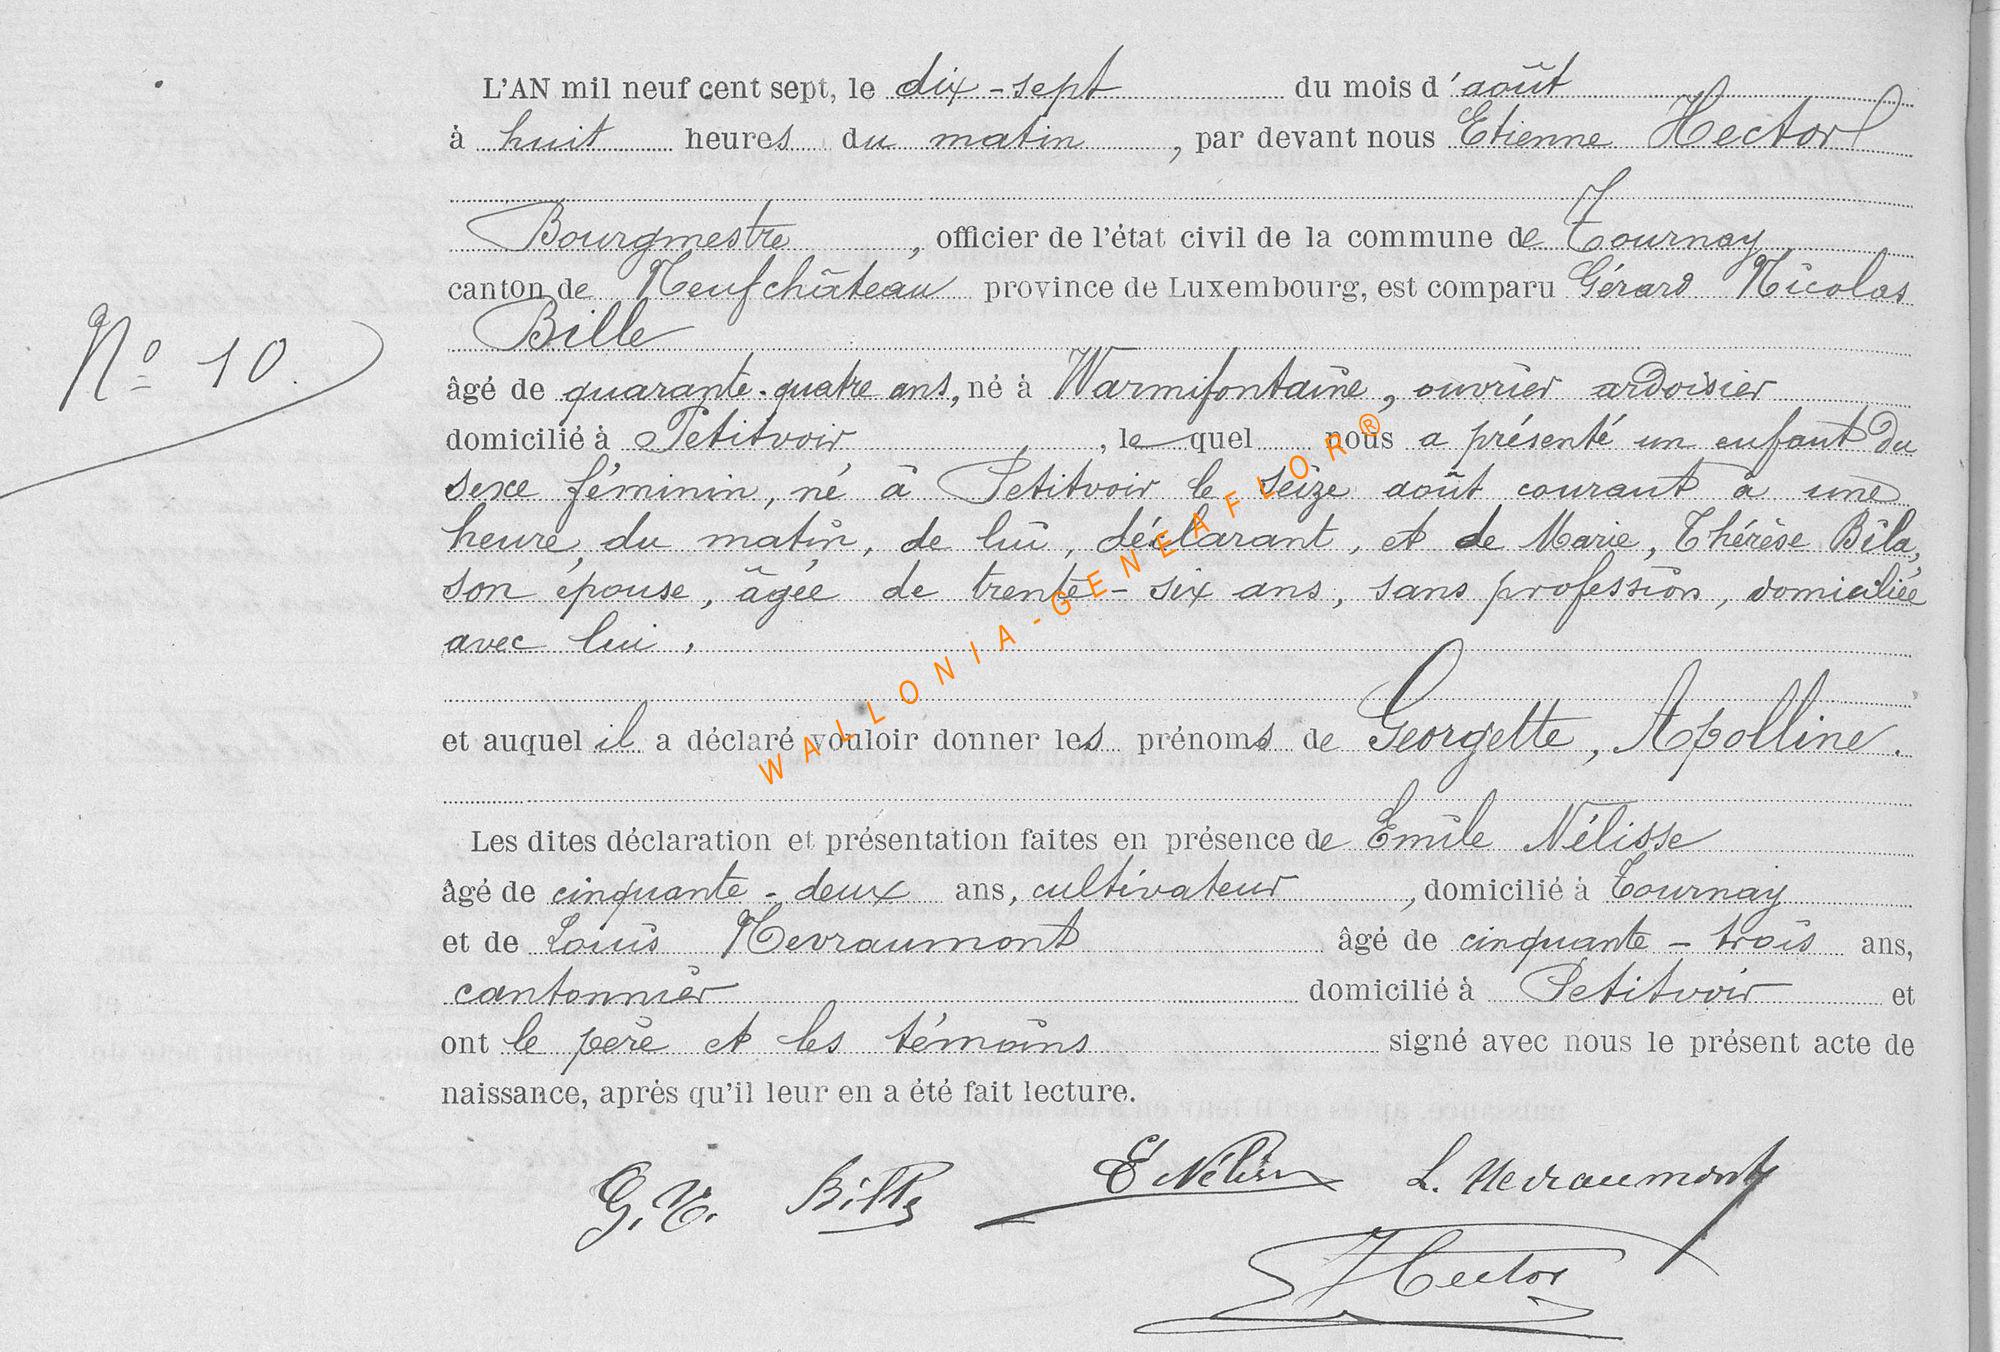 L'AN mil neuf cent sept, le dix-sept du mois d'août
à huit heures du matin, par devant nous Etienne Hector
Bourgmestre, officier de l'état civil de la commune de Tournay
canton de Neufchâteau province de Luxembourg, est comparu Gérard Nicolas
Bille
N° 10.
âgé de quarante-quatre ans, né à Warmifontaine, ouvrier ardoisier
domicilié à Petitvoir, lequel nous a présenté un enfant du
sexe féminin, né à Petitvoir le seize août courant à une
heure du matin, de lui, déclarant, et de Marie, Thérèse Bila,
son épouse, âgée de trente-six ans, sans profession, domiciliée
avec lui.
et auquel il a déclaré vouloir donner les prénoms de Georgette, Apolline.
Les dites déclaration et présentation faites en présence de Emile Nélisse
âgé de cinquante-deux ans, cultivateur, domicilié à Tournay
et de Louis Nevraumont âgé de cinquante-trois ans,
cantonnier domicilié à Petitvoir et
ont le père et les témoins signé avec nous le présent acte de
naissance, après qu'il leur en a été fait lecture.
G. N. Bille E Nélisse L. Nevraumont
Hector
WALLONIA-GENEAFLOR®